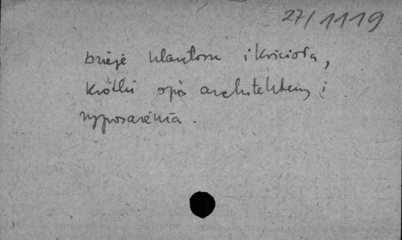 27/1119
Dzieje klasztoru i kościoła,
krótki opis architektury i
wyposażenia.